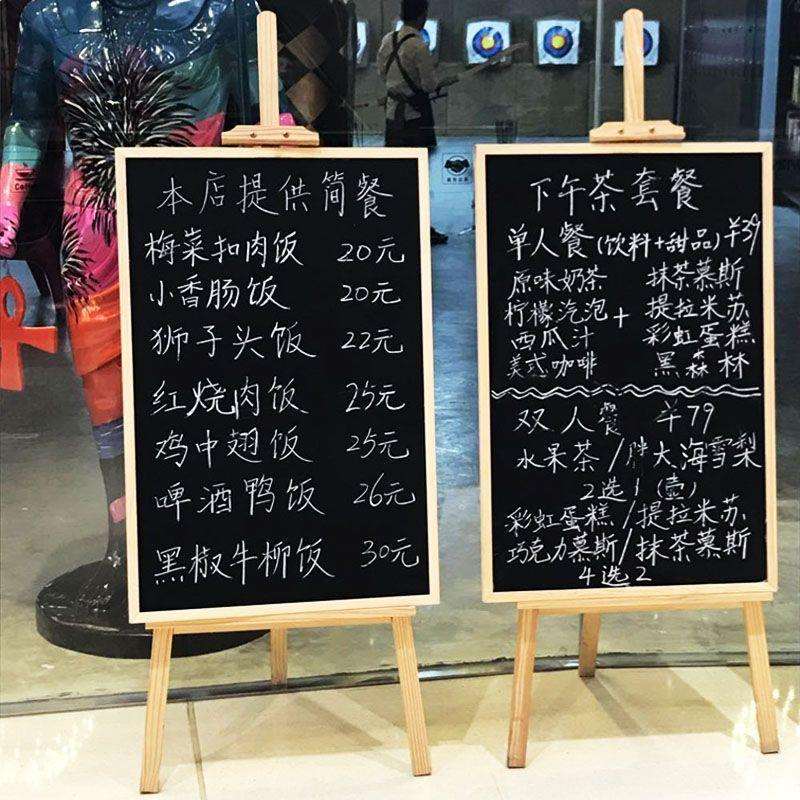 本店提供简餐
梅菜扣肉饭 20元
小香肠饭 20元
狮子头饭 22元
红烧肉饭 25元
鸡中翅饭 25元
啤酒鸭饭 26元
黑椒牛柳饭 30元
下午茶套餐
单人餐(饮料+甜品)¥39
原味奶茶 抹茶慕斯
柠檬汽泡 + 提拉米苏
西瓜汁 彩虹蛋糕
美式咖啡 黑森林
双人餐 ¥79
水果茶/胖大海雪梨
2选1(壶)
彩虹蛋糕/提拉米苏
巧克力慕斯/抹茶慕斯
4选2